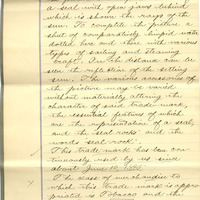 a seal with open jaws behind
which is shown the rays of the
sun. To complete the picture a
sheet of comparatively limpid water
dotted here and there with various
types of sailing and steaming
craft. In the distance can be
seen the reflection of the setting
sun. The various accessories of
the picture may be varied
without materially altering the
character of said trade-mark,
the essential features of which
are the representation of a seal,
and the seal rocks and the
words "seal rock".
This trade-mark has been con
tinuously used by us since
about June 10,
The class of merchandise to
which this trade-mark is appro
priated is Tobacco and the